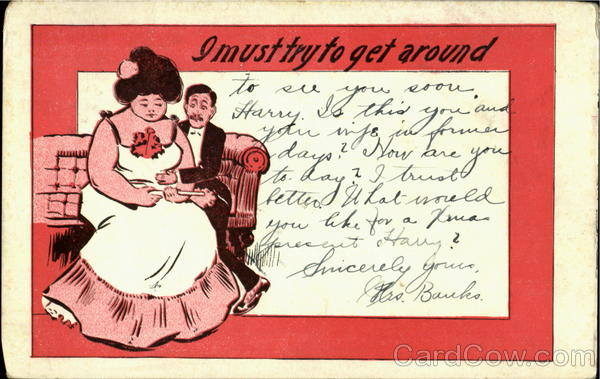 I must try to get around
to see you soon,
Harry. Is this you and
your wife in former
days? How are you
to-day? I trust
better. What would
you like for a Xmas
present Harry?
Sincerely yours,
Mrs. Banks.
CardCow.com